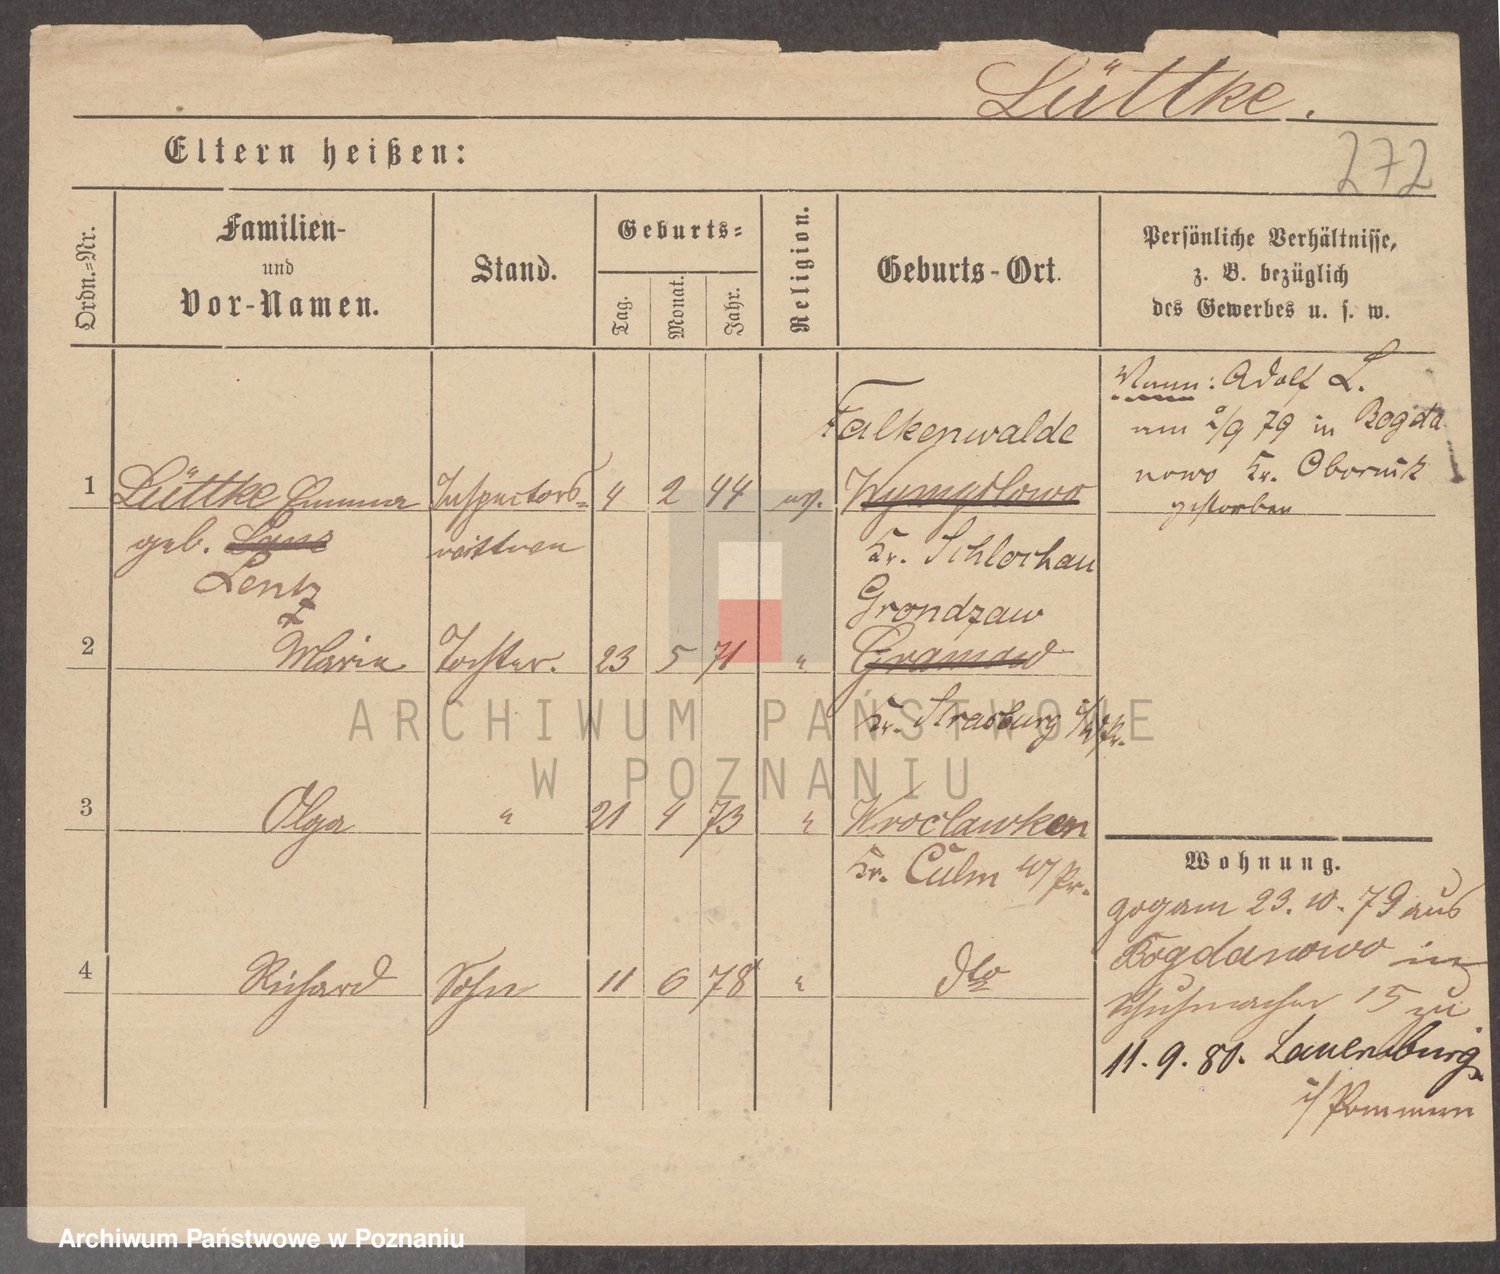 Lüttke.
272
Eltern heißen:
Ordn.=Nr.
Familien-
und
Vor-Namen.
Stand.
Geburts=
Tag.
Monat.
Jahr.
Religion.
Geburts-Ort.
Persönliche Verhältnisse,
z. B. bezüglich
des Gewerbes u. s. w.
Mann: Adolf L.
am 2/9 79 in Bogda
nowo Kr. Obornik
gestorben
Falkenwalde
1 Lüttke Emma Inspectors= 4 2 44 ev. Wymyslowo
geb. Lenz wittwe Kr. Schlochau
Lentz
Grondzaw
2 Marie Tochter. 23 5 71 "
Kr. Strasburg i/W Pr.
3 Olga " 21 4 73 " Wroclawken
Kr. Culm W/Pr.
4 Richard Sohn 11 6 78 " dto
Wohnung.
zog am 23. 10. 79 aus
Bogdanowo in
Schuhmacher 15 zu
11. 9. 80. Lauenburg
i/Pommern
ARCHIWUM PAŃSTWOWE
W POZNANIU
Archiwum Państwowe w Poznaniu